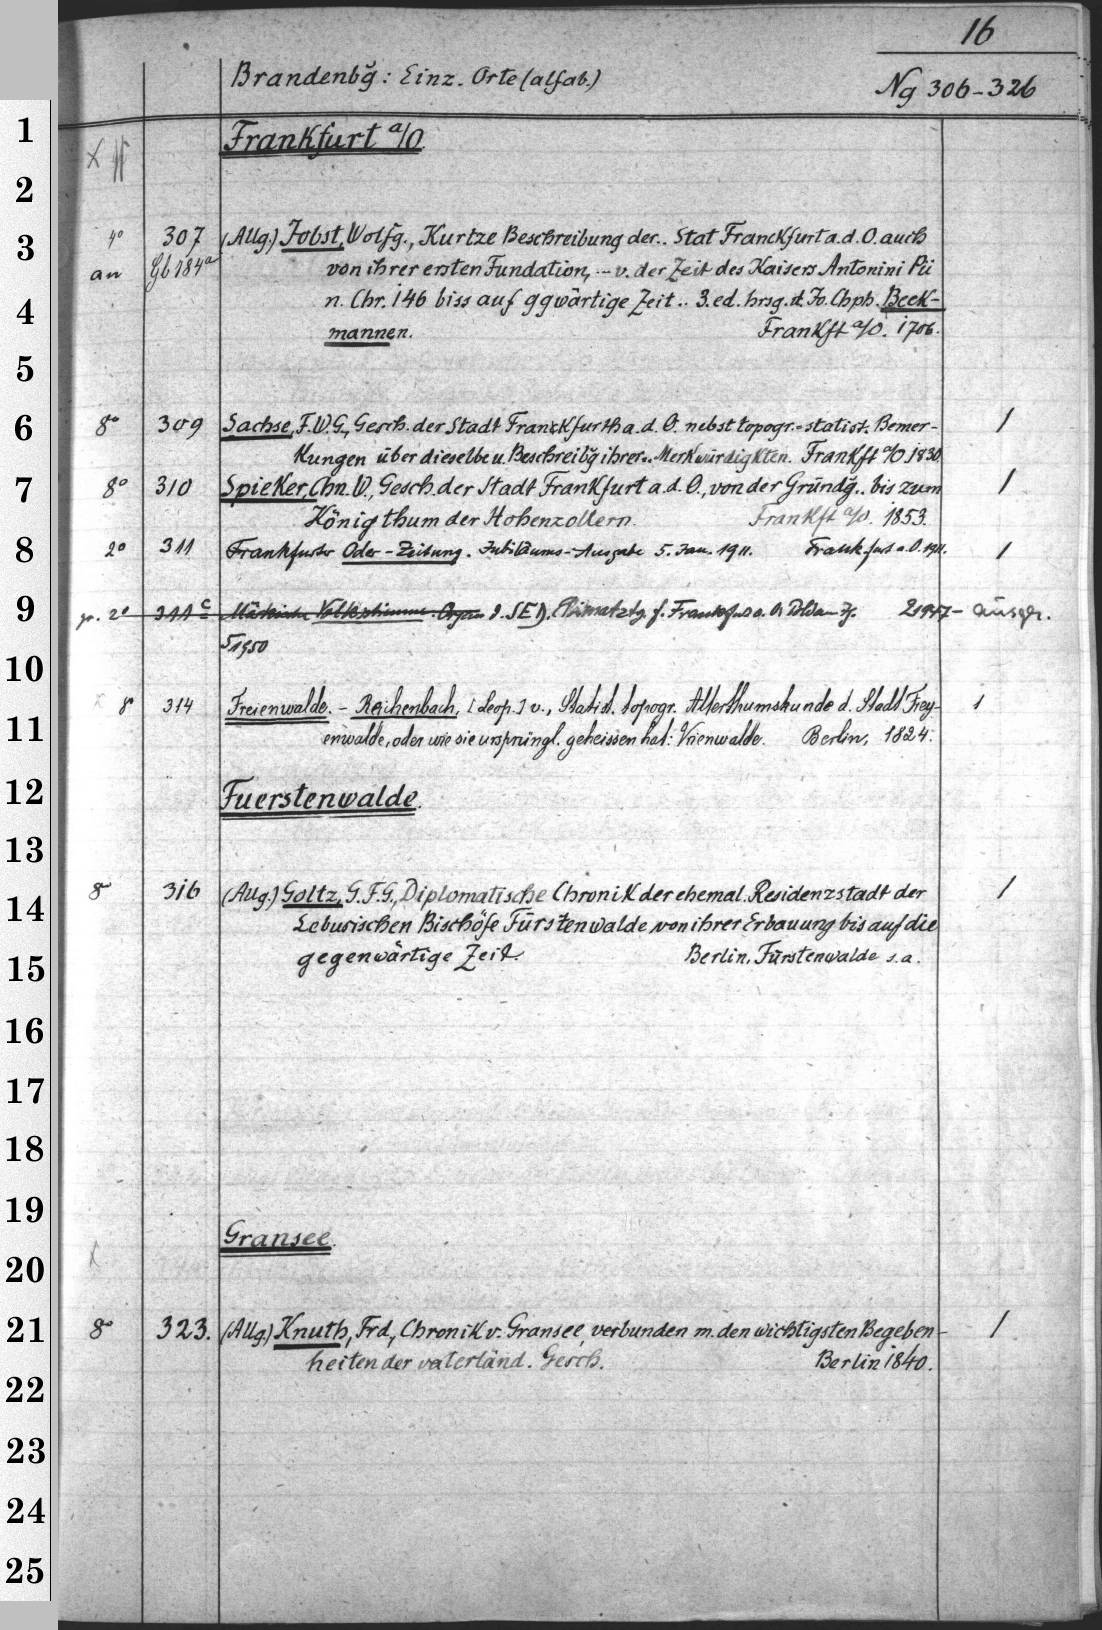 16
Brandenbg̃: Einz. Orte (alfab.)
Ng 306-326
1
Frankfurt a/O.
2
3
4° 307 (Allg.) Jobst, Wolfg., Kurtze Beschreibung der.. Stat Franckfurt a. d. O. auch
an Gb 184a von ihrer ersten Fundation, ... v. der Zeit des Kaisers Antonini Pii
4
n. Chr. 146 biss auf ggwärtige Zeit .. 3. ed. hrsg. v. Jo. Chph. Beck-
mannen. Frankft a/O. 1706.
5
6
8° 309 Sachse, F. W. G., Gesch. der Stadt Franckfurth a. d. O. nebst topogr.-statist. Bemer- 1
kungen über dieselbe u. Beschreibg̃ ihrer.. Merkwürdigkten. Frankft a/O 1830
7
8° 310 Spieker, Chn. W., Gesch. der Stadt Frankfurt a. d. O., von der Gründg̃.. bis zum 1
Königthum der Hohenzollern. Frankft a/O. 1853.
8
2° 311 Frankfurter Oder-Zeitung. Jubiläums-Ausgabe 5. Jan. 1911. Frankfurt a. O. 1911. 1
9
gr. 2° 311c Märkische Volksstimme. Organ d. SED. 2 1947- ausgr.
5 1950
10
8° 314 Freienwalde. - Reichenbach, [Leop.] v., Statist. topogr. Alterthumskunde d. Stadt Frey- 1
11
enwalde, oder wie sie ursprüngl. geheissen hat: Vrienwalde. Berlin, 1824.
12
Fuerstenwalde.
13
14
8° 316 (Allg.) Goltz, G. F. G., Diplomatische Chronik der ehemal. Residenzstadt der 1
Lebusischen Bischöfe Fürstenwalde von ihrer Erbauung bis auf die
15
gegenwärtige Zeit. Berlin, Fürstenwalde s. a.
16
17
18
19
Gransee.
20
21
8° 323. (Allg.) Knuth, Frd., Chronik v. Gransee, verbunden m. den wichtigsten Begeben- 1
heiten der vaterländ. Gesch. Berlin 1840.
22
23
24
25